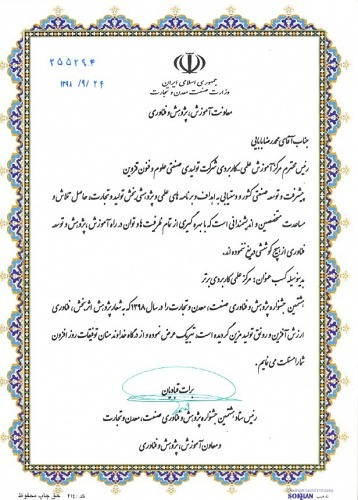 ۲۵۵۲۹۴
۱۳۹۸ /۹/ ۲۴
جمهوری اسلامی ایران
وزارت صنعت، معدن و تجارت
معاونت آموزش، پژوهش و فناوری
جناب آقای محمدرضا بابایی
رئیس محترم مرکز آموزش علمی ـ کاربردی شرکت تولیدی صنعتی علوم و فنون قزوین
پیشرفت و توسعه صنعتی کشور و دستیابی به اهداف و برنامه های علمی و پژوهشی بخش تولید و تجارت، حاصل تلاش و
مساعدت متخصصین و اندیشمندانی است که با بهره گیری از تمام ظرفیت ها و توان در راه آموزش، پژوهش و توسعه
فناوری از هیچ کوششی دریغ ننموده اند.
بدینوسیله کسب عنوان: مرکز علمی کاربردی برتر
هشتمین جشنواره پژوهش و فناوری صنعت، معدن و تجارت را در سال ۱۳۹۸ که به شعار پژوهش اثربخش، فناوری
ارزش آفرین و رونق تولید مزین گردیده است، تبریک عرض نموده و از درگاه خداوند منان توفیقات روز افزون
شما را مسئلت می نمایم.
برات قبادیان
رئیس ستاد هشتمین جشنواره پژوهش و فناوری صنعت، معدن و تجارت
و معاون آموزش، پژوهش و فناوری
SOKHAN
کد: ۲۱۴۰
حق چاپ محفوظ